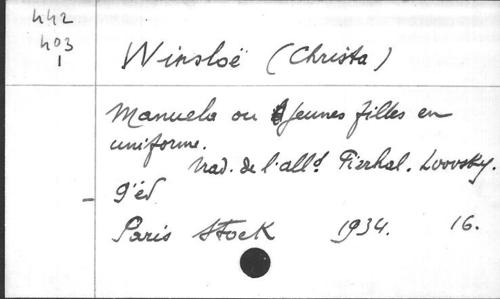 442
403
1
Winsloë (Christa)
Manuela ou Jeunes filles en
uniforme.
trad. de l'alld. Pierhal. Loovsky.
9'éd
Paris Stock 1934. 16.